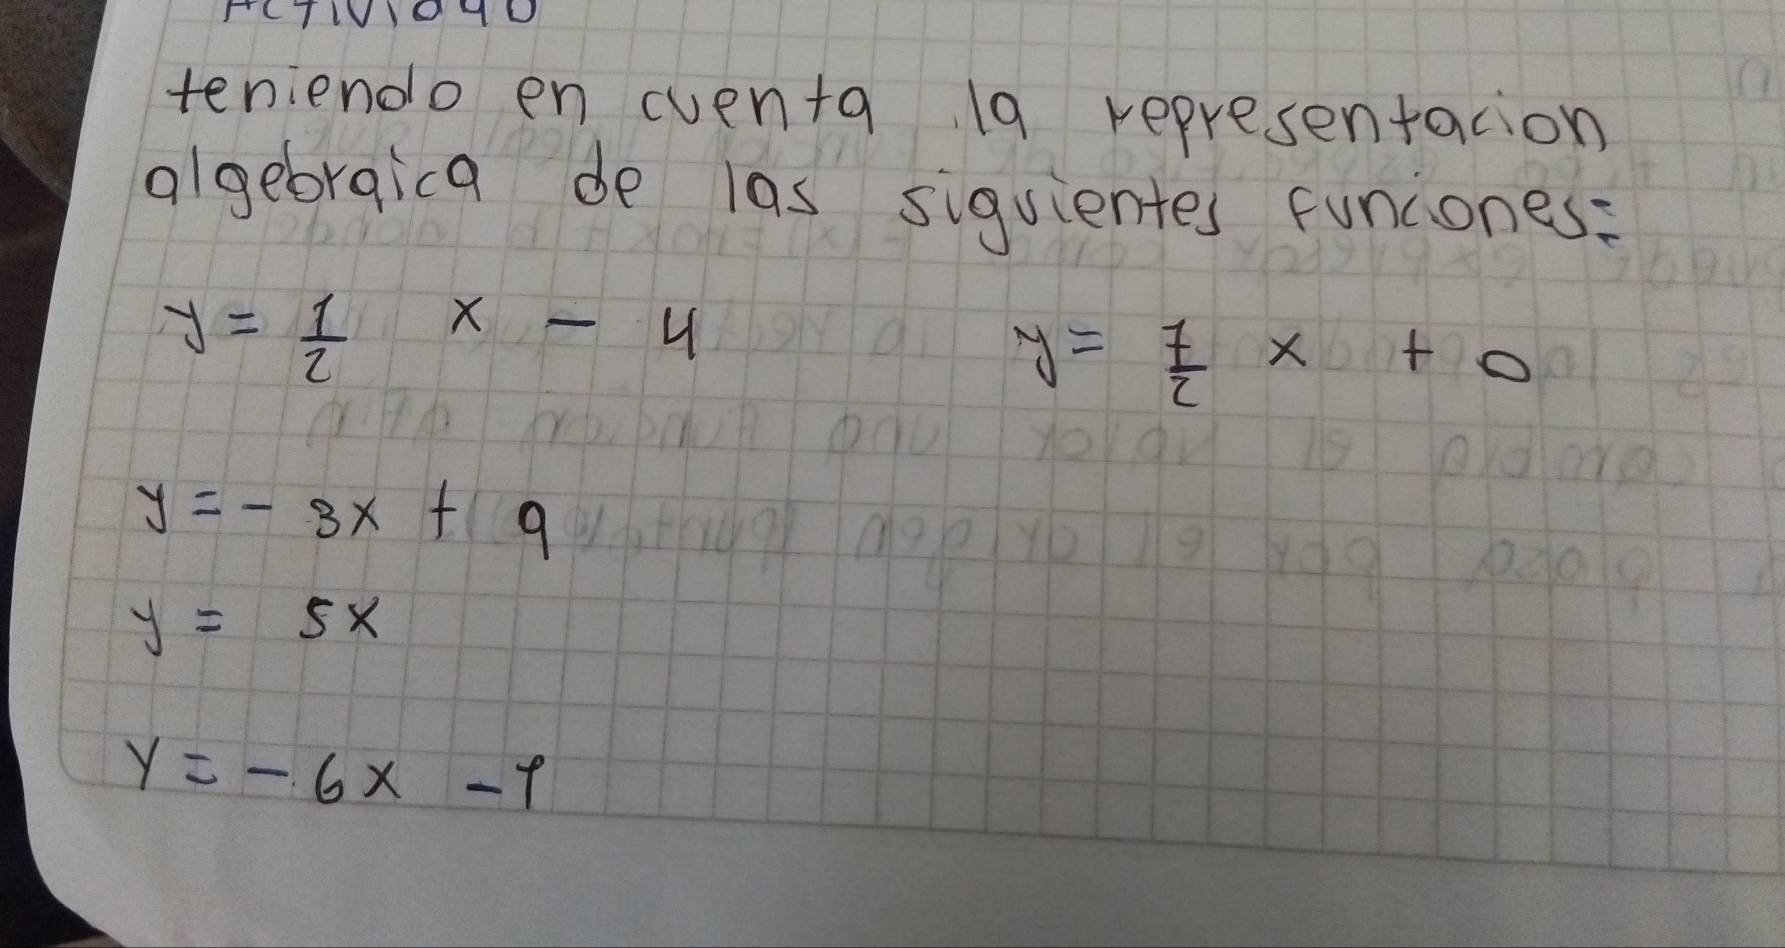 Actividad
teniendo en cuenta la representacion
algebraica de las siguientes funciones:
y = 1/2 x - 4 y = 7/2 x + 0
y = - 3x + 9
y = 5x
y = - 6x - 1